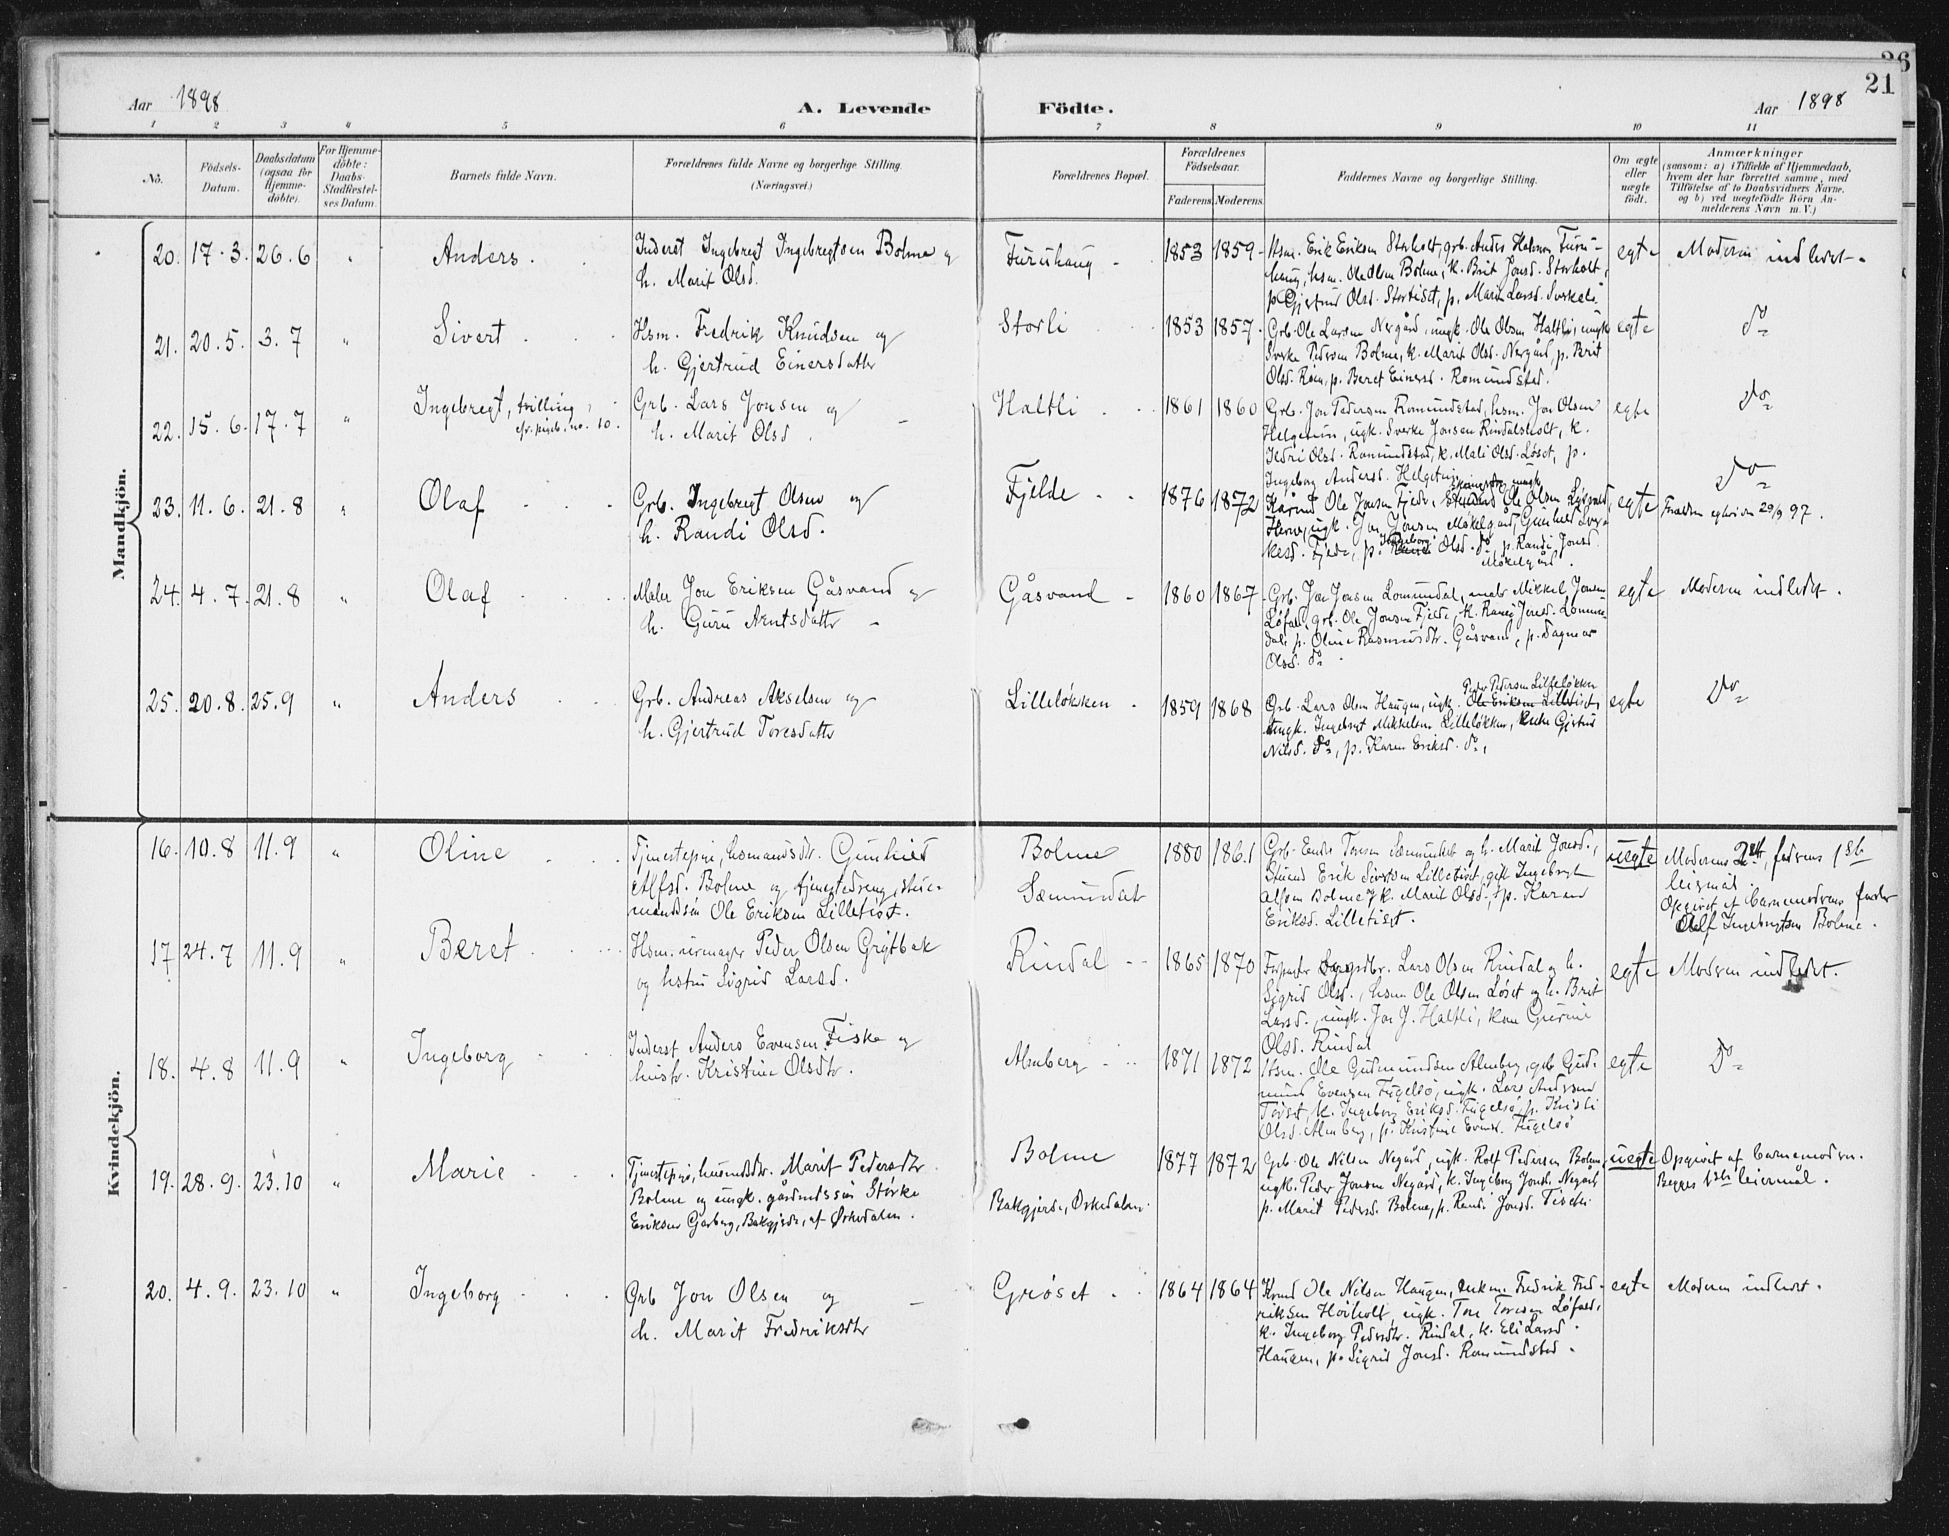 26
21
Aar 1898
A. Levende Födte.
Aar 1898
1 2 3 4 5 6 7 8 9 10 11
No.
Födsels-
Datum.
Daabsdatum
(ogsaa for
Hjemme-
döbte).
For Hjemme-
döbte:
Daabs-
Stadfæstel-
ses Datum.
Barnets fulde Navn.
Forældrenes fulde Navne og borgerlige Stilling.
(Næringsvei.)
Forældrenes Bopæl.
Forældrenes
Födselsaar.
Faderens. Moderens.
Faddernes Navne og borgerlige Stilling.
Om ægte
eller
uægte
födt.
Anmærkninger
(saasom: a) i Tilfælde af Hjemmedaab,
hvem der har forrettet samme, med
Tilföielse af to Daabsvidners Navne,
og b) ved uægtefödte Börn An-
melderens Navn m. V.)
Mandkjön.
20. 17.3. 26.6 " Anders.
Inderst Ingebregt Ingebregtsen Bolme og
h. Marit Olsd.
Furuhaug
1853 1859
Hsm. Erik Eriksen Storholt, grb. Anders Halvorsen Furu-
haug, hsm. Ole Olsen Bolme, k. Brit Jonsd. Storholt,
p. Gjertrud Olsd. Stortiset, p. Marit Larsd.
egte
Moderen indledet.
21. 20.5. 3.7 " Sivert
Hsm. Fredrik Knudsen og
h. Gjertrud Einersdatter
Storli
1853 1857
Grb. Ole Larsen Nergård, ungk. Ole Olsen Haltli, ungk.
Sverke Pedersen Bolme, k. Marit Olsd. Nergård, p. Brit
Olsd. Röen, p. Beret Einersd. Romundstad.
egte
Do
22. 15.6. 17.7 " Ingebregt, tvilling,
cfr. pigeb. no. 10.
Grb. Lars Jonsen og
h. Marit Olsd.
Haltli
1861 1860
Grb. Jon Pedersen Romundstad, hsm. Jon Olsen
Helgetun, ugk. Sverke Jonsen Rindalsholt, k.
Ildri Olsd. Romundstad, k. Mali Olsd. Løset, p.
Ingeborg Andersd. Helgetun
egte
Do
23. 11.6. 21.8 " Olaf
Grb. Ingebregt Olsen og
h. Randi Olsd.
Fjelde
1876 1872
Kårmd Ole Jonsen Fjelde, Ole Olsen
ugk. Jon Jonsen Møkelgård, Gunhild Sver-
kesd. Fjelde, p. Ingeborg Olsd. do, p. Randi Jonsd.
Møkelgård.
egte
Do
Forældrene egteviede 29/9 97.
24. 4.7. 21.8 " Olaf
Maler Jon Eriksen Gåsvand og
h. Guru Arntsdatter
Gåsvand
1860 1867
Grb. Jon Jonsen Lomundal, maler Mikkel Jonsen
Løfald, grb. Ole Jonsen Fjelde, k. Randi Jonsd. Lomun-
dal, p. Oline Rasmusdtr. Gåsvand, p. Dagmar
Olsd. do.
egte
Moderen indledet.
25. 20.8. 25.9 " Anders
Grb. Andreas Akselsen og
h. Gjertrud Toresdatter
Lilleløkken
1859 1868
Peder Pedersen Lilleløkken
Grb. Lars Olsen Haugen, ugk. Ole Eriksen Lilletiset,
ungk. Ingebregt Mikkelsen Lilleløkken, Gjertrud
Nilsd. do, p. Karen Eriksd. do,
egte
Do
Kvindekjön.
16. 10.8 11.9 " Oline
Tjenestepige, husmandsdtr. Gunhild
Alfsd. Bolme og tjenestedreng, stue-
mandssøn Ole Eriksen Lilletiset.
Bolme
Sæmundset
1880 1861
Grb. Endre Toresen Sæmundset og h. Marit Jonsd.,
Stuemd Erik Sivertsen Lilletiset, ugk. Ingebregt
Alfsen Bolme, k. Marit Olsd., p. Karen
Eriksd. Lilletiset.
uegte
Moderens 2det, faderens 1ste
leiermål.
Opgivet af barnemoderens fader
Alf Ingebregtsen Bolme.
17. 24.7 11.9 " Beret
Hsm. urmager Peder Olsen Grytbak
og hstru Sigrid Larsd.
Rindal
1865 1870
Forpagter Lars Olsen Rindal og h.
Sigrid Olsd., hsm. Ole Olsen Løset og h. Brit
Larsd., ungk. Jon J. Haltli, kone Gurine
Olsd. Rindal
egte
Moderen indledet.
18. 4.8 11.9 " Ingeborg
Inderst Anders Evensen Fiske og
hustr. Kristine Olsdtr.
Almberg
1871 1872
Hsm. Ole Gudmundsen Almberg, grb. Gud-
mund Evensen Fugelsø, ugk. Lars Andersen
Tørset, k. Ingeborg Eriksd. Fugelsø, p. Kristi
Olsd. Almberg, p. Kristine Evensd. Fugelsø
egte
Do
19. 28.9. 23.10 " Marie
Tjenestepige, husmdsdtr. Marit Pedersdtr
Bolme og ungk. gårdmdssøn Størke
Eriksen Garberg, Bakgjerde, af Ørkedalen.
Bolme
Bakgjerde, Orkedalen.
1877 1872
Grb. Ole Nilsen Negård, ugk. Rolf Pedersen Bolme,
ugk. Peder Jonsen Negård, k. Ingeborg Jonsd. Negård,
p. Marit Pedersd. Bolme, p. Randi Jonsd.
uegte
Opgivet af barnemoderen.
Begges 1ste leiermål.
20. 4.9. 23.10 " Ingeborg
Grb Jon Olsen og
h. Marit Fredriksdtr
Greøset
1864 1864
Kårmd Ole Nilsen Haugen, Fredrik Fred-
riksen Høiholt, ugk. Tore Toresen Løfald,
k. Ingeborg Pedersdtr. Rindal, k. Eli Larsd.
Haugen, p. Sigrid Jonsd. Romundstad.
egte
Moderen indledet.